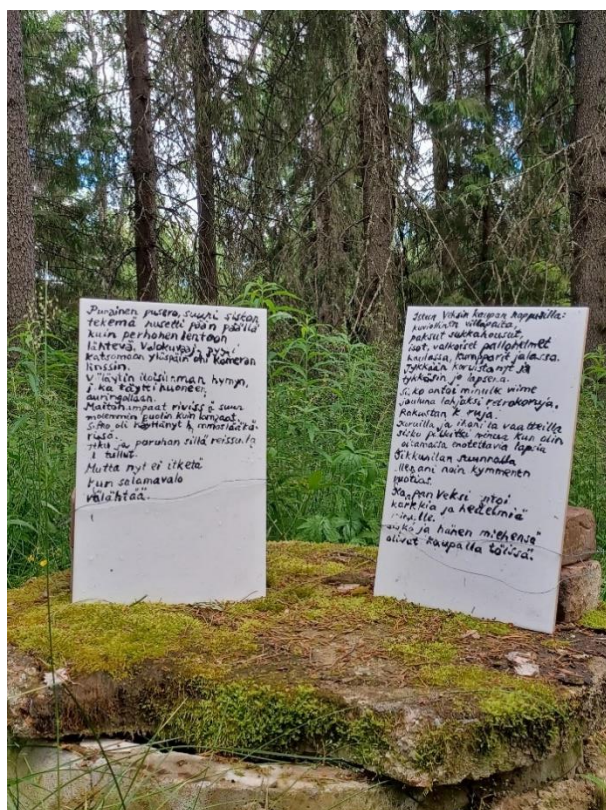 Punainen pusero, suuri siskon
tekemä rusetti pään päällä
kuin perhonen lentoon
lähtevä. Valokuvaaja pyysi
katsomaan yläspäin ohi kameran
linssin.
iloisimman hymyn,
täytti huoneen
auringollaan.
Maitohampaat rivissä suun
molemmin puolin kuin
Sisko oli näyttänyt
rissa.
itku ja paruhan sillä reissulla
tullut.
Mutta nyt ei itketä
kun salamavalo
välähtää.
Istun Veksin kaupan rappusilla:
kuviollinen villapaita,
paksut sukkahousut,
isot, valkoiset pallohelmet
kaulassa, kumpparit jalassa.
Tykkään koruista nyt ja
tykkäsin jo lapsena.
Sisko antoi minulle viime
jouluna lahjaksi retrokoruja.
Rakastan k ruja.
Koruilla ja ihanilla vaatteilla
sisko palkitsi minua kun olin
hoitamassa
Tikkurilan suunnalla
ollessani noin kymmenen
vuotias.
Kaupan Veksi
karkkia ja hedelmiä
minulle.
Sisko ja hänen miehensä
olivat kaupalla töissä.